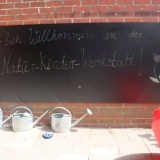 lich Willkommen in der
Natur-Kinder-Werkstatt!